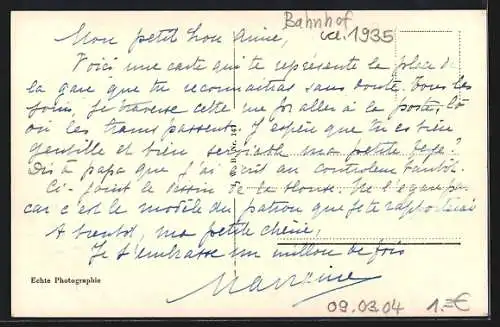 Bahnhof
vel. 1935
Mon petit Lou aimé,
Voici une carte qui te représente la place de
la gare que tu reconnaitras sans doute. Tous les
jours, je traverse cette rue pr aller à la poste, là
où les trams passent. J'espère que tu es bien
gentille et bien serviable ma petite
Dis à papa que j'ai écrit au controleur tantôt.
Ci-joint le dessin de la blouse. Ne l'égare pas
car c'est le modèle du patron que je te rapporterais
A bientôt, ma petite chérie,
Je t'embrasse un million de fois
Echte Photographie
09.03.04
1.-€